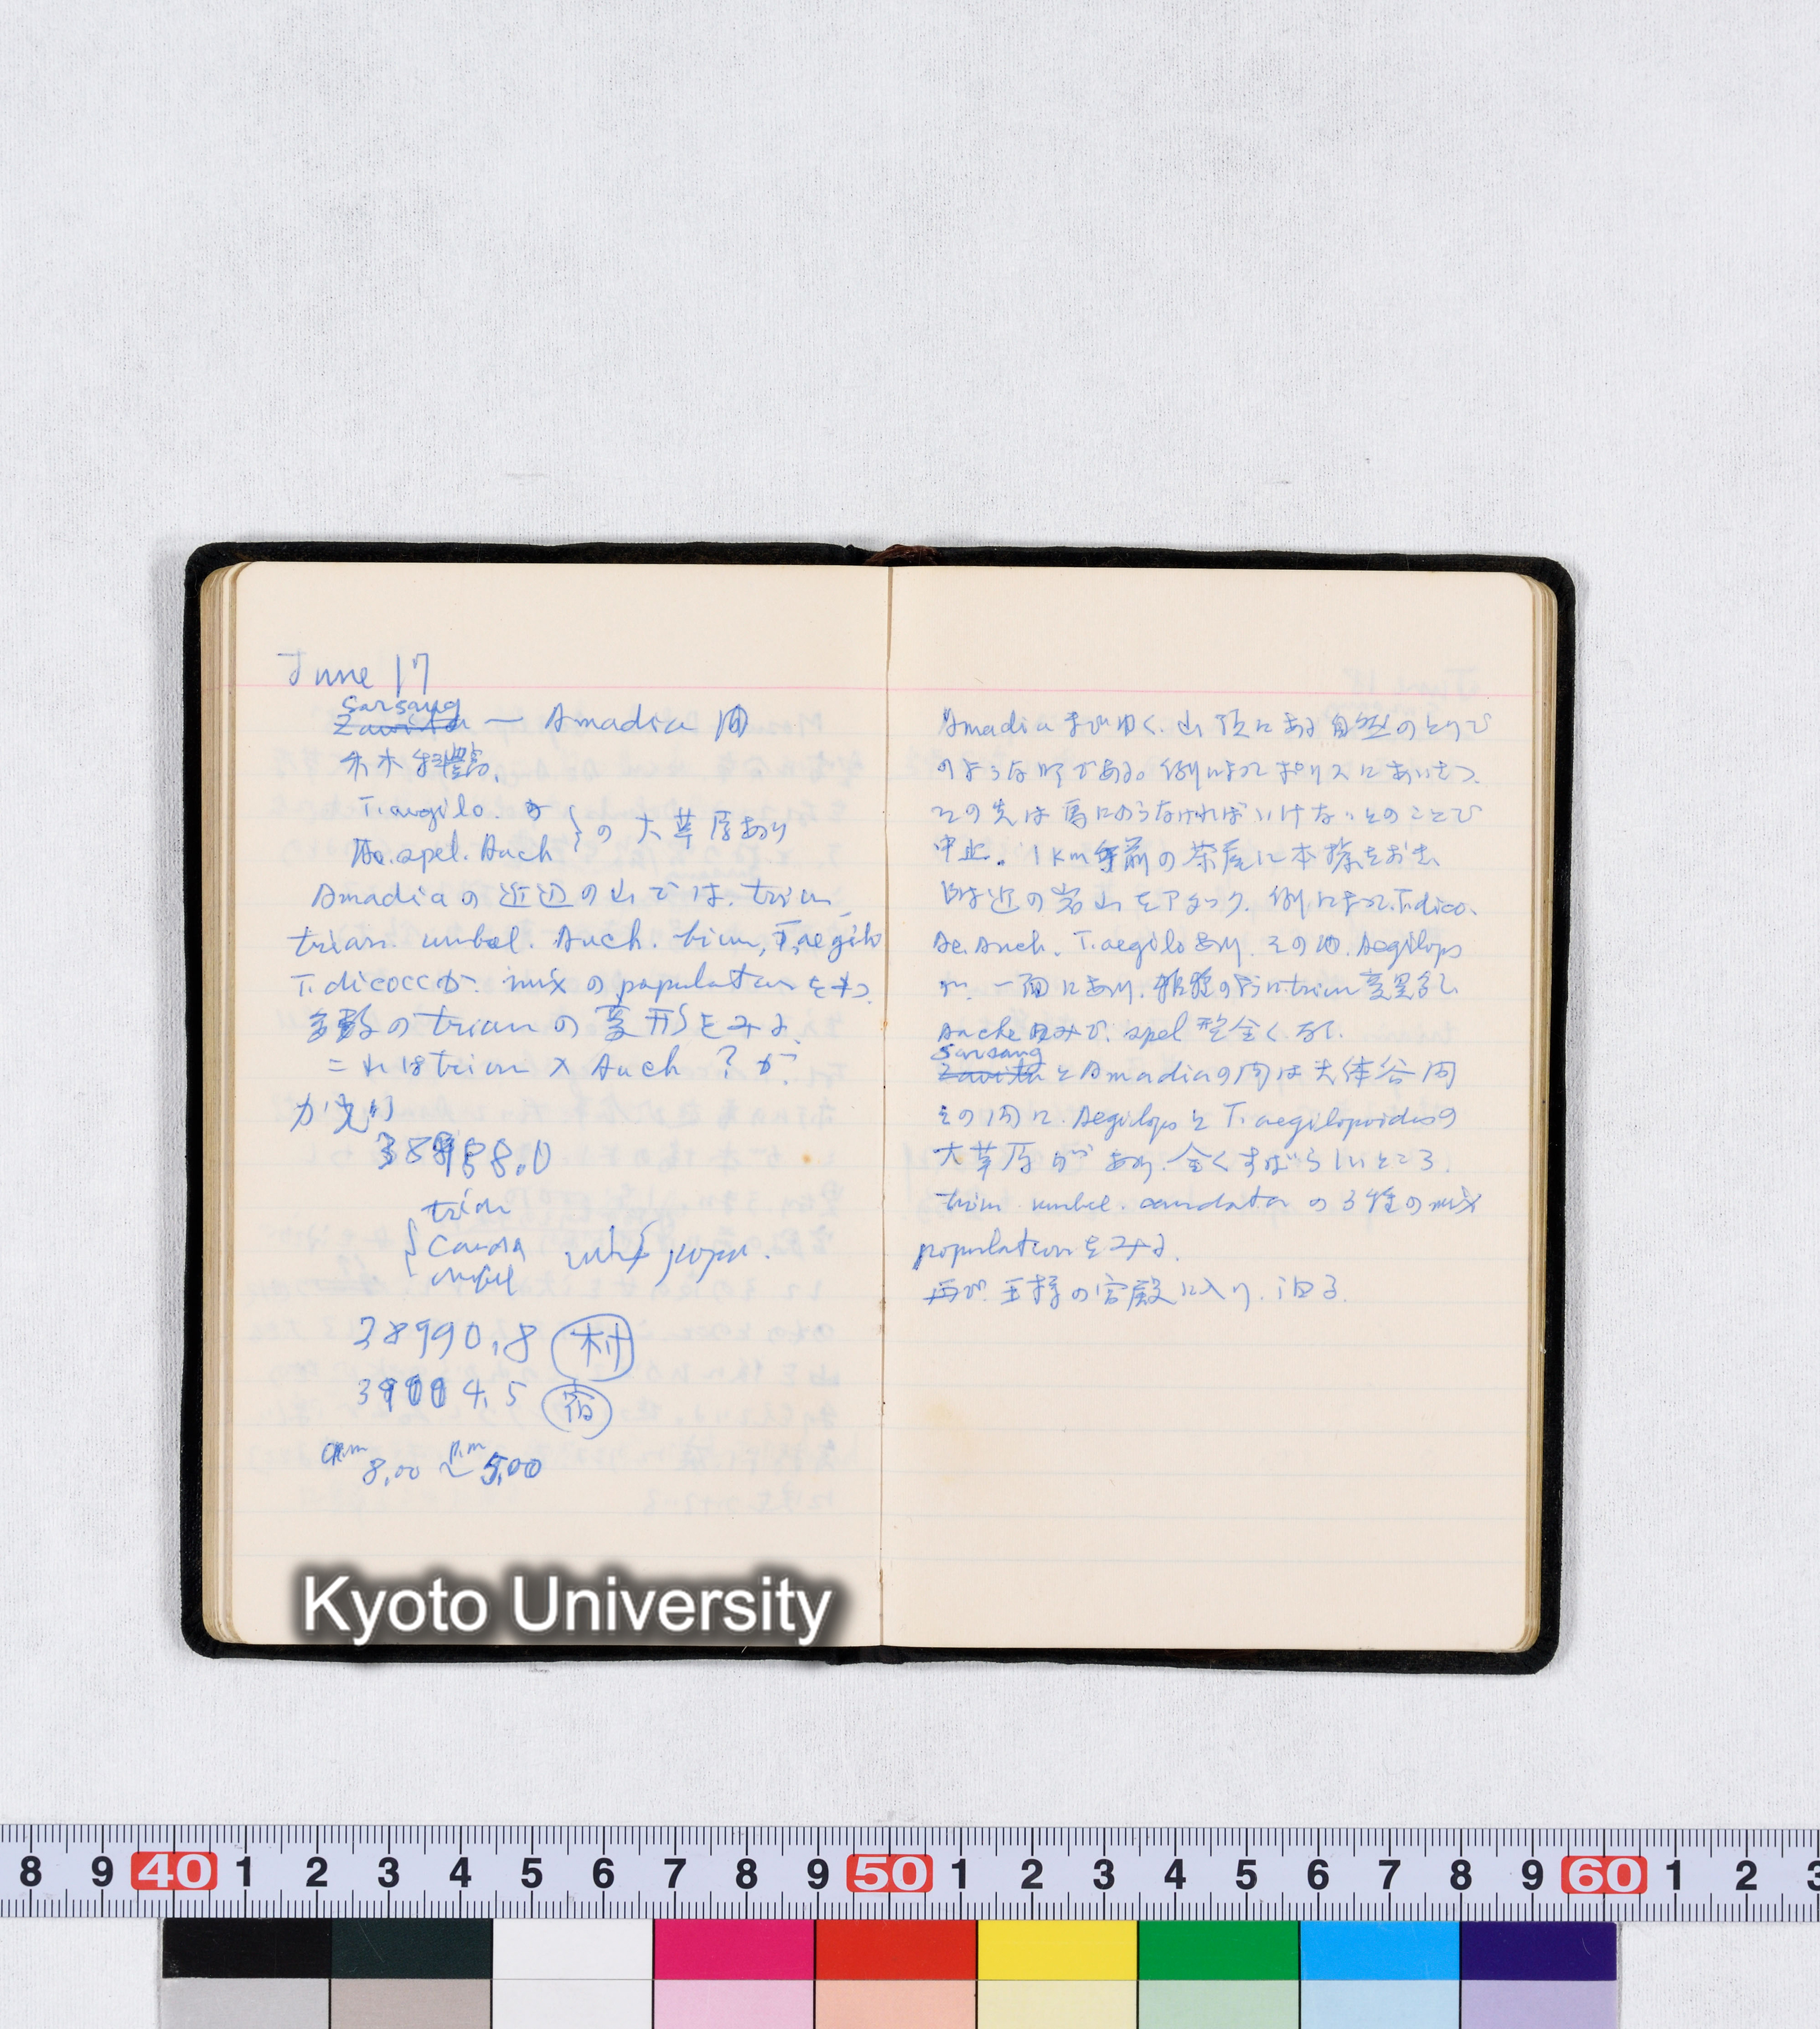 June 17
Sarsang
Zawita — Amadia 間
T. aegilo. か
Ae. spel. Auch } の 大草原あり
Amadia の近辺の山では. trium
trian. umbel. Auch. biun, T. aegilo
T. dicoccが mix の populationをもつ
多数の trian の変形をみる.
これは trian × Auch ? か.
38988.0
trian
umbel
mix popu.
38990.8 村
39004.5 宿
a.m 8.00 〜 p.m 5.00
Amadia までゆく. 山頂にある自然のとりで
のような町である。例によってポリスにあいさつ.
この先は馬にのらなければいけないとのことで
中止. 1km手前の茶屋に本拠をおき
附近の岩山をアタック. 例によって. T. dico.
Ae. Auch. T. aegiloあり. その他. Aegilops
が. 一面にあり. trium 変異多し
Auche のみで. spel 型全くなし.
Sarsang
Zawita と Amadiaの間は大体谷間
その間に. Aegilops と T. aegilopoidesの
大草原があり. 全くすばらしいところ.
trium. umbel. caudata の3種の mix
populationをみる.
再び. 王様の宮殿に入り. 泊る.
Kyoto University
8 9 40 1 2 3 4 5 6 7 8 9 50 1 2 3 4 5 6 7 8 9 60 1 2 3